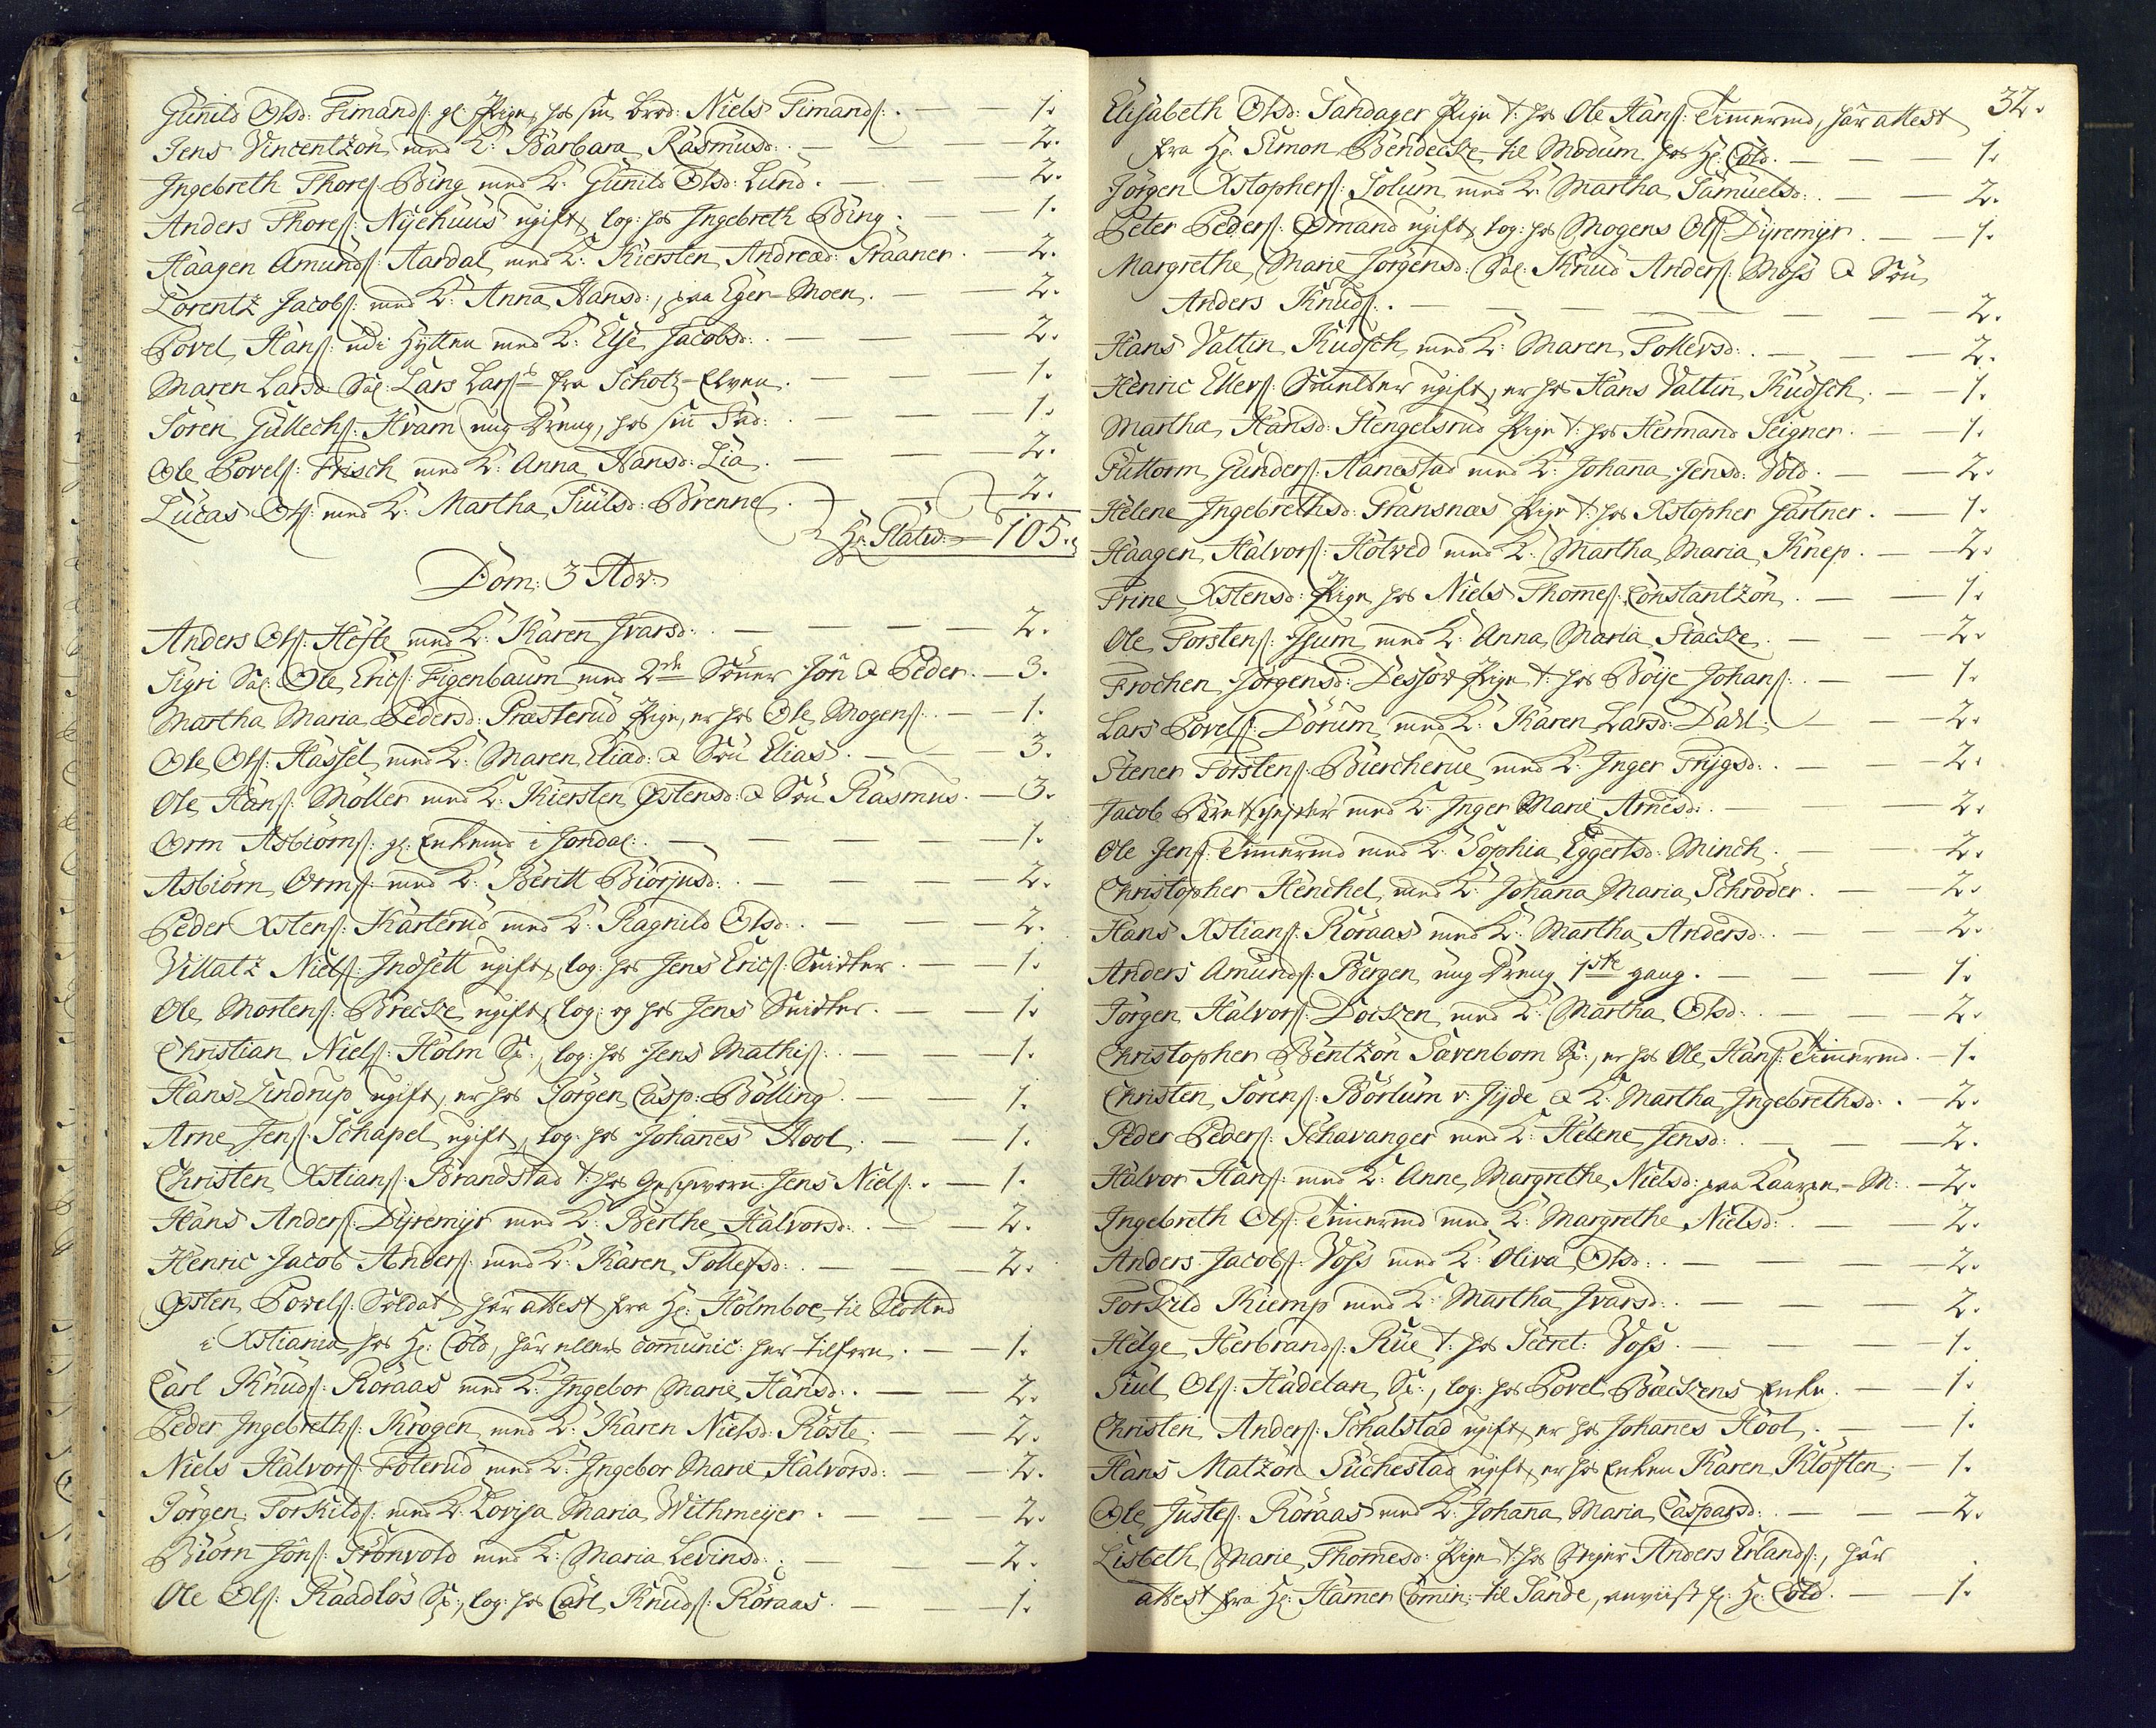 Gunild Olsd: Timands: gl: Pige, hos sin Brod: Niels Timands: — — 1.
Jens Vincentzön med K: Barbara Rasmusd: — — — 2.
Ingebreth Thores: Bing med K: Gunild Olsd: Lund. — — 2.
Anders Thores: Nyehuus ugift, log: hos Ingebreth Bing. — — 1.
Haagen Amunds: Aardal med K: Kiersten Andread: Praaner. — 2.
Lorentz Jacobs: med K: Anna Hansd:, paa Eger-Moen. — — 2.
Povel Hans: udi Hytten med K: Else Jacobsd: — — 2.
Maren Larsd: Sal: Lars Lars: fra Schotz-Elven. — — 1.
Sören Gullechs: Hvam ung Dreng, hos sin Fad: — — 1.
Ole Povels: Frisch med K: Anna Hansd: Lia. — — 2.
Lucas Ols: med K: Martha Juulsd: Brenne — — 2.
105.
Dom: 3 Adv:
Anders Ols: Höfte med K: Karen Ivarsd: — — — 2.
Sigri Sal: Ole Erics: Figenbaum med 2de Sönner Jon & Peder. — 3.
Martha Maria Pedersd: Præsterud Pige, er hos Ole Mogens: — 1.
Ole Ols: Hassel med K: Maren Eliad: & Sön Elias. — — 3.
Ole Hans: Möller med K: Kiersten Östensd: & Sön Rasmus. — 3.
Orm Asbiörns: gl: Enkemd i Jondal: — — — 1.
Asbiörn Orms: med K: Beritt Biörjusd: — — — 2.
Peder Xstens: Karterud med K: Ragnild Olsd: — — 2.
Villatz Niels: Indsett ugift, log: hos Jens Erics: Snidker. — — 1.
Ole Mortens: Brecke, ugift, log: og hos Jens Snidker. — — 1.
Christian Niels: Holm Sv:, log: hos Jens Mathis: — — 1.
Hans Lindrup ugift, er hos Jörgen Casp: Bölling. — — 1.
Arne Jens: Schapel ugift, log: hos Johanes Hool. — — 1.
Christen Xstians: Brandstad t: hos Geschworn: Jens Niels: — 1.
Hans Anders: Dyremyr med K: Berthe Halvorsd: — — 2.
Henric Jacob Anders: med K: Karen Tollefsd: — — — 2.
Östen Povels: Soldat, har attest fra Hr: Holmboe til Slottet
i Xstiania, hos Hr: Cold, har ellers communic: her tilforn. — — 1.
Carl Knuds: Röraas med K: Ingebor Marie Hansd: — — 2.
Peder Ingebreths: Krogen med K: Karen Nielsd: Röste. — — 2.
Niels Halvors: Foterud med K: Ingebor Marie Halvorsd: — — 2.
Jörgen Torkilds: med K: Lovisa Maria Withmeyer. — — 2.
Biörn Jöns: Grönvold med K: Maria Levinsd: — — 2.
Ole Ols: Raadlös Sv:, log: hos Carl Knuds: Röraas. — — 1.
32.
Elisabeth Olsd: Sandager Pige t: hos Ole Hans: Timermd, har attest
fra Hr: Simon Bendecke til Modum, hos Hr: Cold. — — 1.
Jörgen Xstophers: Solum med K: Martha Samuelsd: — — 2.
Peter Peders: Omand ugift, log: hos Mogens Ols: Dyremyr. — — 1.
Margrethe Marie Jörgensd: Sal: Knud Anders: Moss & Sön
Anders Knuds: — — — — — 2.
Hans Valtin Kudsch med K: Maren Tollevsd: — — — 2.
Henric Ellers: Smelter ugift, er hos Hans Valtin Kudsch. — — 1.
Martha Hansd: Hengelsrud Pige t: hos Hermand Seigner. — — 1.
Guttorm Gunders: Aanestad med K: Johana Jensd: Vold. — — 2.
Helene Ingebrethsd: Gransnæs Pige t: hos Xstopher Gartner. — 1.
Haagen Halvors: Holved med K: Martha Maria Knep. — — 2.
Trine Xstensd: Pige hos Niels Thomes: Constantzön. — — 1.
Ole Torstens: Isum med K: Anna Maria Stacke. — — 2.
Frochen Jörgensd: Dessow Pige t: hos Böije Johans: — — 1.
Lars Povels: Dörum med K: Karen Larsd: Dahl: — — 2.
Stener Torstens: Biercherue med K: Inger Trygsd: — — 2.
Jacob med K: Inger Marie Arnesd: — — 2.
Ole Jens: Timermd med K: Sophia Eggertsd: Minch. — — 2.
Christopher Henchel med K: Johana Maria Schröder. — 2.
Hans Xstians: Röraas med K: Martha Andersd: — — 2.
Anders Amunds: Bergen ung Dreng 1ste gang. — — 1.
Jörgen Halvors: Docken med K: Martha Olsd: — — — 2.
Christopher Bentzön Sævenbom Sv:, er hos Ole Hans: Timermd. — 1.
Christen Sörens: Börlum v: Jyde & K: Martha Ingebrethsd: — 2.
Peder Peders: Schavanger med K: Helene Jensd: — — 2.
Halvor Hans: med K: Anne Margrethe Nielsd: paa — 2.
Ingebreth Ols: Timermd med K: Margrethe Nielsd: — — 2.
Anders Jacobs: Voss med K: Oliva Olsd: — — — 2.
Torkild Kiemp med K: Martha Ivarsd: — — — 2.
Helge Herbrands: Rue t: hos Secret: Voss. — — — 1.
Juul Ols: Hadelan Sv:, log: hos Povel Bæckens Enke. — — 1.
Christen Anders: Schalstad ugift, er hos Johanes Hool. — — 1.
Hans Matzön Suchestad ugift, er hos Enken Karen Klöften. — 1.
Ole Justes: Röraas med K: Johana Maria Caspard: — — 2.
Lisbeth Marie Thomesd: Pige t: hos Anders Erlands:, har
attest fra Hr: Hamer Comin: til Sande, anviist fr: Hr: Cold. — — 1.